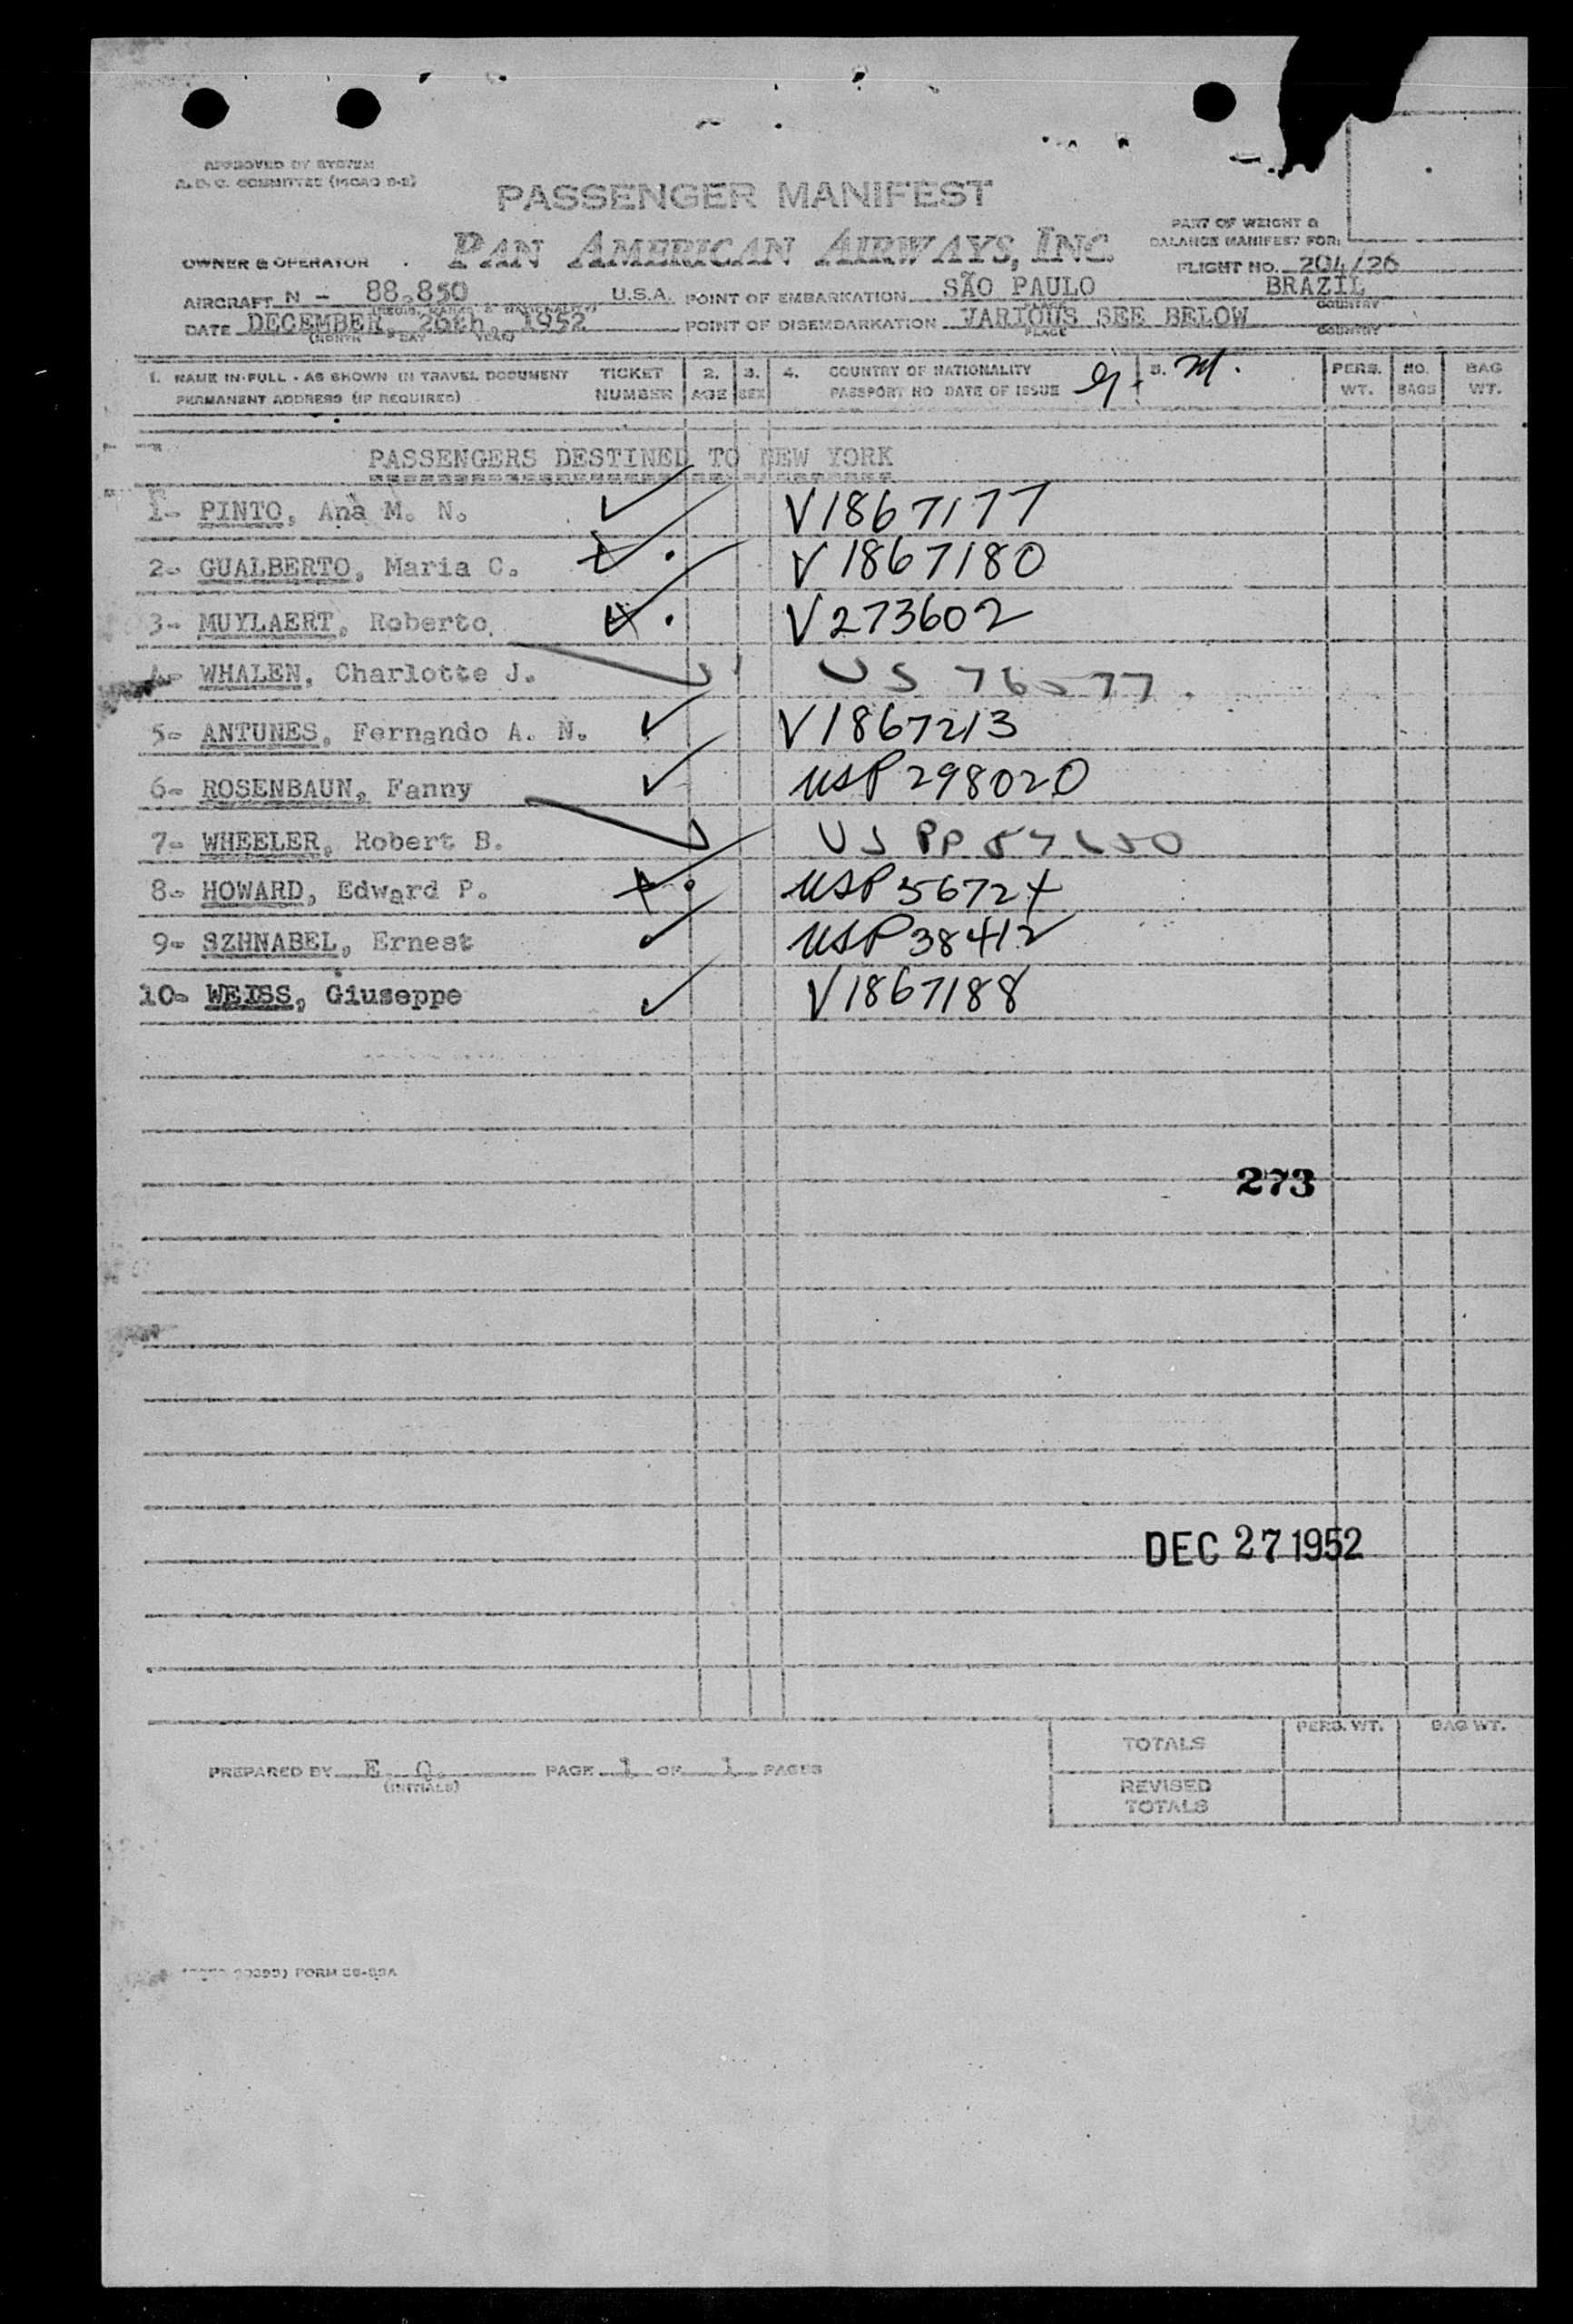 APPROVED BY SYSTEM
A.D.C. COMMITTEE (MCAO 9-2)
PASSENGER MANIFEST
PART OF WEIGHT &
BALANCE MANIFEST FOR:
OWNER & OPERATOR PAN AMERICAN AIRWAYS, INC.
FLIGHT NO. 204/26
AIRCRAFT N - 88.850 U.S.A. POINT OF EMBARKATION SÃO PAULO BRAZIL
(REGIS. MARKS & NATIONALITY) PLACE COUNTRY
DATE DECEMBER, 26th, 1952 POINT OF DISEMBARKATION VARIOUS SEE BELOW
(MONTH DAY YEAR) PLACE COUNTRY
1. NAME IN FULL - AS SHOWN IN TRAVEL DOCUMENT TICKET 2. 3. 4. COUNTRY OF NATIONALITY 5. M. PERS. NO. BAG
PERMANENT ADDRESS (IF REQUIRED) NUMBER AGE SEX PASSPORT NO DATE OF ISSUE WT. BAGS WT.
PASSENGERS DESTINED TO NEW YORK
1- PINTO, Ana M. N. V1867177
2- GUALBERTO, Maria C. V1867180
3- MUYLAERT, Roberto V273602
4- WHALEN, Charlotte J. US 76577
5- ANTUNES, Fernando A. N. V1867213
6- ROSENBAUN, Fanny USP 298020
7- WHEELER, Robert B. US PP
8- HOWARD, Edward P. USP 56724
9- SZHNABEL, Ernest USP 38412
10- WEISS, Giuseppe V1867188
273
DEC 27 1952
PERS. WT. BAG WT.
TOTALS
PREPARED BY E. O. PAGE 1 OF 1 PAGES
(INITIALS)
REVISED
TOTALS
FORM